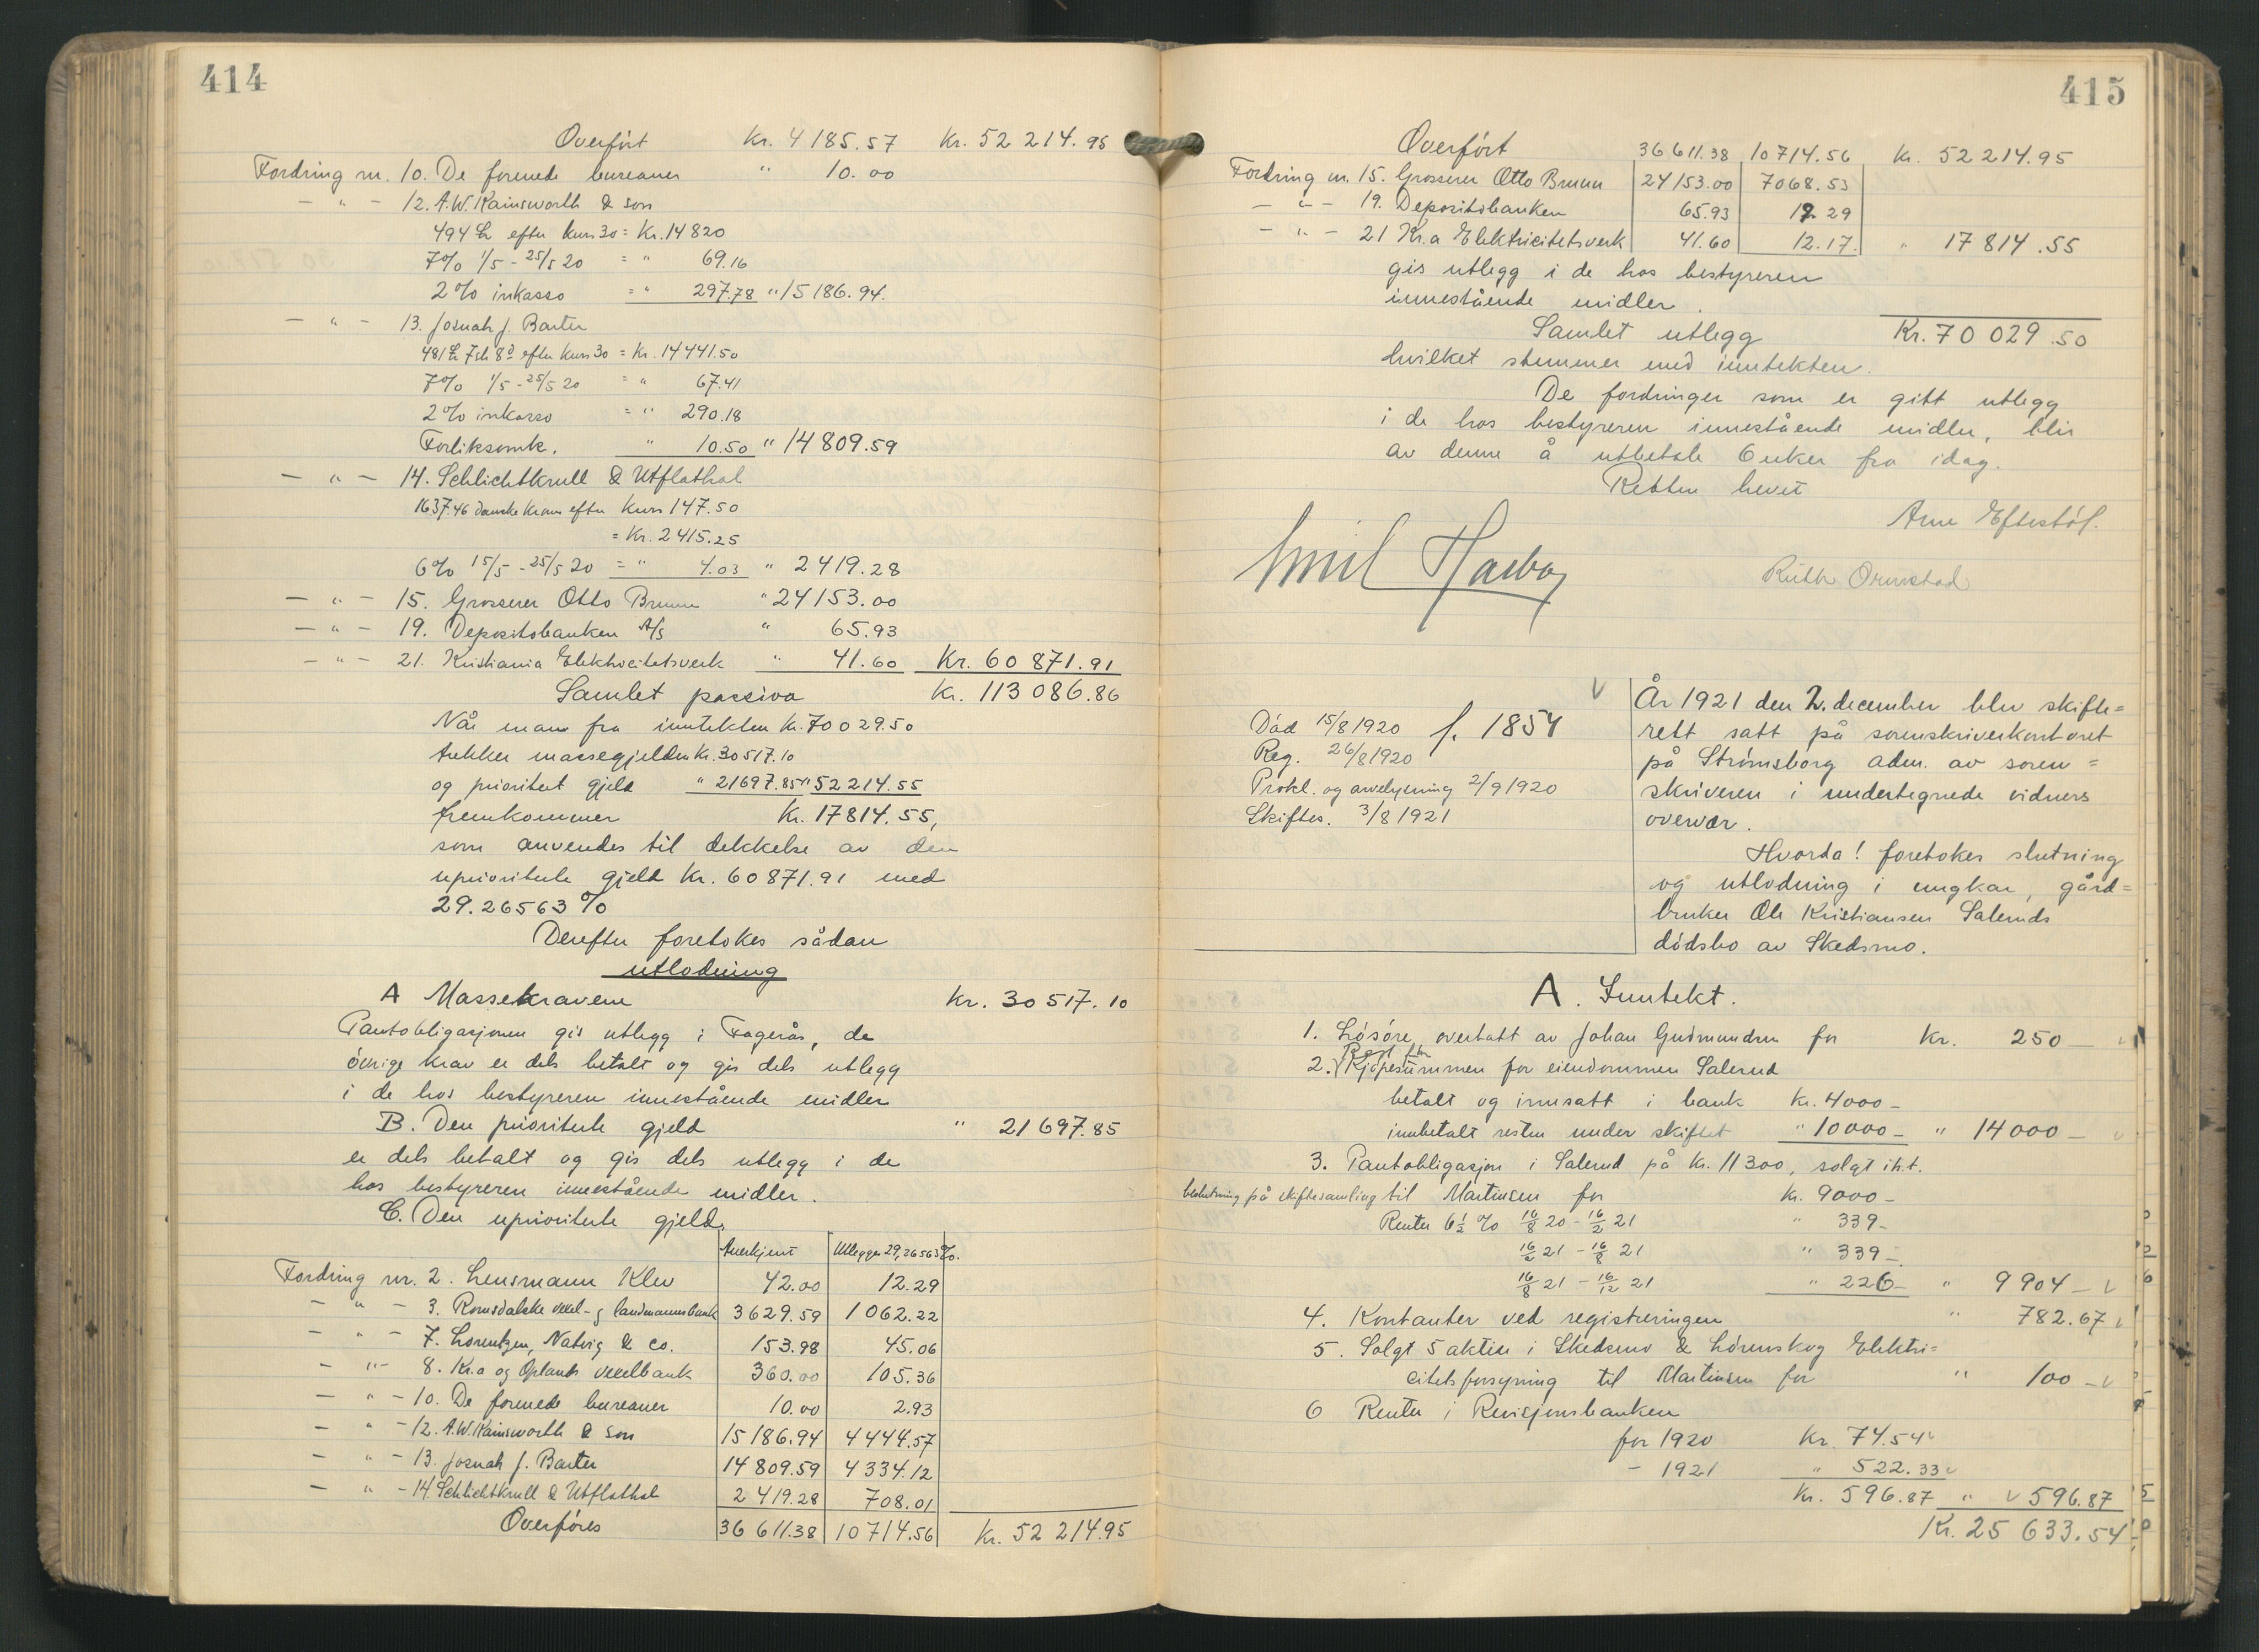 414
Overført Kr. 4185.57 Kr. 52 214.95
Fordring nr. 10. De forenede bureauer " 10.00
— " — 12. A.W. Kainsworth & son
494 £ efter kurs 30 = Kr. 14 820
7% 1/5 - 25/5 20 = " 69.16
2% inkasso = " 297.78 " 15 186.94.
— " — 13. Josuah J. Barter
481 £ 7 sh 8d efter kurs 30 = Kr. 14441.50
7% 1/5 - 25/5 20 = " 67.41
2% inkasso = " 290.18
Forliksomk. " 10.50 " 14 809.59
— " — 14. Schlichtkrull & Utflathal
1637.46 danske kroner efter kurs 147.50
= Kr. 2415.25
6% 15/5 - 25/5 20 = " 4.03 " 2419.28
— " — 15. Grosserer Otto Bruun " 24153.00
— " — 19. Depositobanken A/s " 65.93
— " — 21. Kristiania Elektricitetsverk " 41.60 Kr. 60 871.91
Samlet passiva Kr. 113 086.86
Når man fra inntekten Kr. 70 029.50
trekker massegjelden Kr. 30517.10
og prioritert gjeld " 21697.85 " 52 214.55
fremkommer Kr. 17814.55,
som anvendes til dekkelse av den
uprioriterte gjeld Kr. 60871.91 med
29.26563 %
Derefter foretokes sådan
utlodning
A Massekravene Kr. 30 517.10
Pantobligasjonen gis utlegg i Fagerås, de
øvrige krav er dels betalt og gis dels utlegg
i de hos bestyreren innestående midler
B. Den prioriterte gjeld " 21 697.85
er dels betalt og gis dels utlegg i de
hos bestyreren innestående midler.
C. Den uprioriterte gjeld.
Anerkjent Utlegges 29,26563%.
Fordring nr. 2. Lensmann Klev 42.00 12.29
— " — 3. Romsdalske vexel- og landmannsbank 3629.59 1062.22
— " — 7. Lorentzen, Natvig & co. 153.98 45.06
— " — 8. Kr.a og Oplands vexelbank 360.00 105.36
— " — 10. De forenede bureauer 10.00 2.93
— " — 12. A.W. Kainsworth & son 15186.94 4444.57
— " — 13. Josuah J. Barter 14809.59 4334.12
— " — 14. Schlichtkrull & Utflathal 2419.28 708.01
Overføres 36 611.38 10714.56 Kr. 52 214.95
415
Overført 36 611.38 10714.56 Kr. 52 214.95
Fordring nr. 15. Grosserer Otto Bruun 24153.00 7068.53
— " — 19. Depositobanken 65.93 19.29
— " — 21 Kr.a Elektricitetsverk 41.60 12.17. " 17 814.55
gis utlegg i de hos bestyreren
innestående midler.
Samlet utlegg Kr. 70 029.50
hvilket stemmer med inntekten.
De fordringer som er gitt utlegg
i de hos bestyreren innestående midler, blir
av denne å utbetale 6 uker fra idag.
Retten hevet
Arne Eftestøl.
Emil
Ruth Ormstad
Død 15/8 1920 f. 1854
Reg. 26/8 1920
Prokl. og arvelysning 2/9 1920
Skiftes. 3/8 1921
År 1921 den 2. december blev skifte=
rett satt på sorenskriverkontoret
på Strømsborg adm. av soren=
skriveren i undertegnede vidners
overvær.
Hvorda! foretokes slutning
og utlodning i ungkar, gård=
bruker Ole Kristiansen Saleruds
dødsbo av Skedsmo.
A. Inntekt.
1. Løsøre, overtatt av Johan Gudmundsen for Kr. 250 —
2. Rest for Kjøpesummen for eiendommen Salerud
betalt og innsatt i bank Kr. 4000 —
innbetalt resten under skiftet " 10000 — " 14000 —
3. Pantobligasjon i Salerud på Kr. 11300, solgt ih.t.
beslutning på skiftesamling til Martinsen for Kr. 9000 —
Renter 6½ % 16/8 20 - 16/2 21 " 339 —
16/2 21 - 16/8 21 " 339 —
16/8 21 - 16/12 21 " 226 — " 9904 —
4. Kontanter ved registreringen " 782.67
5. Solgt 5 aktier i Skedsmo & Lørenskog Elektri=
citetsforsyning til Martinsen for " 100 —
6 Renter i Revisjonsbanken
for 1920 Kr. 74.54
— 1921 " 522.33
Kr. 596.87 " 596.87
Kr. 25 633.54